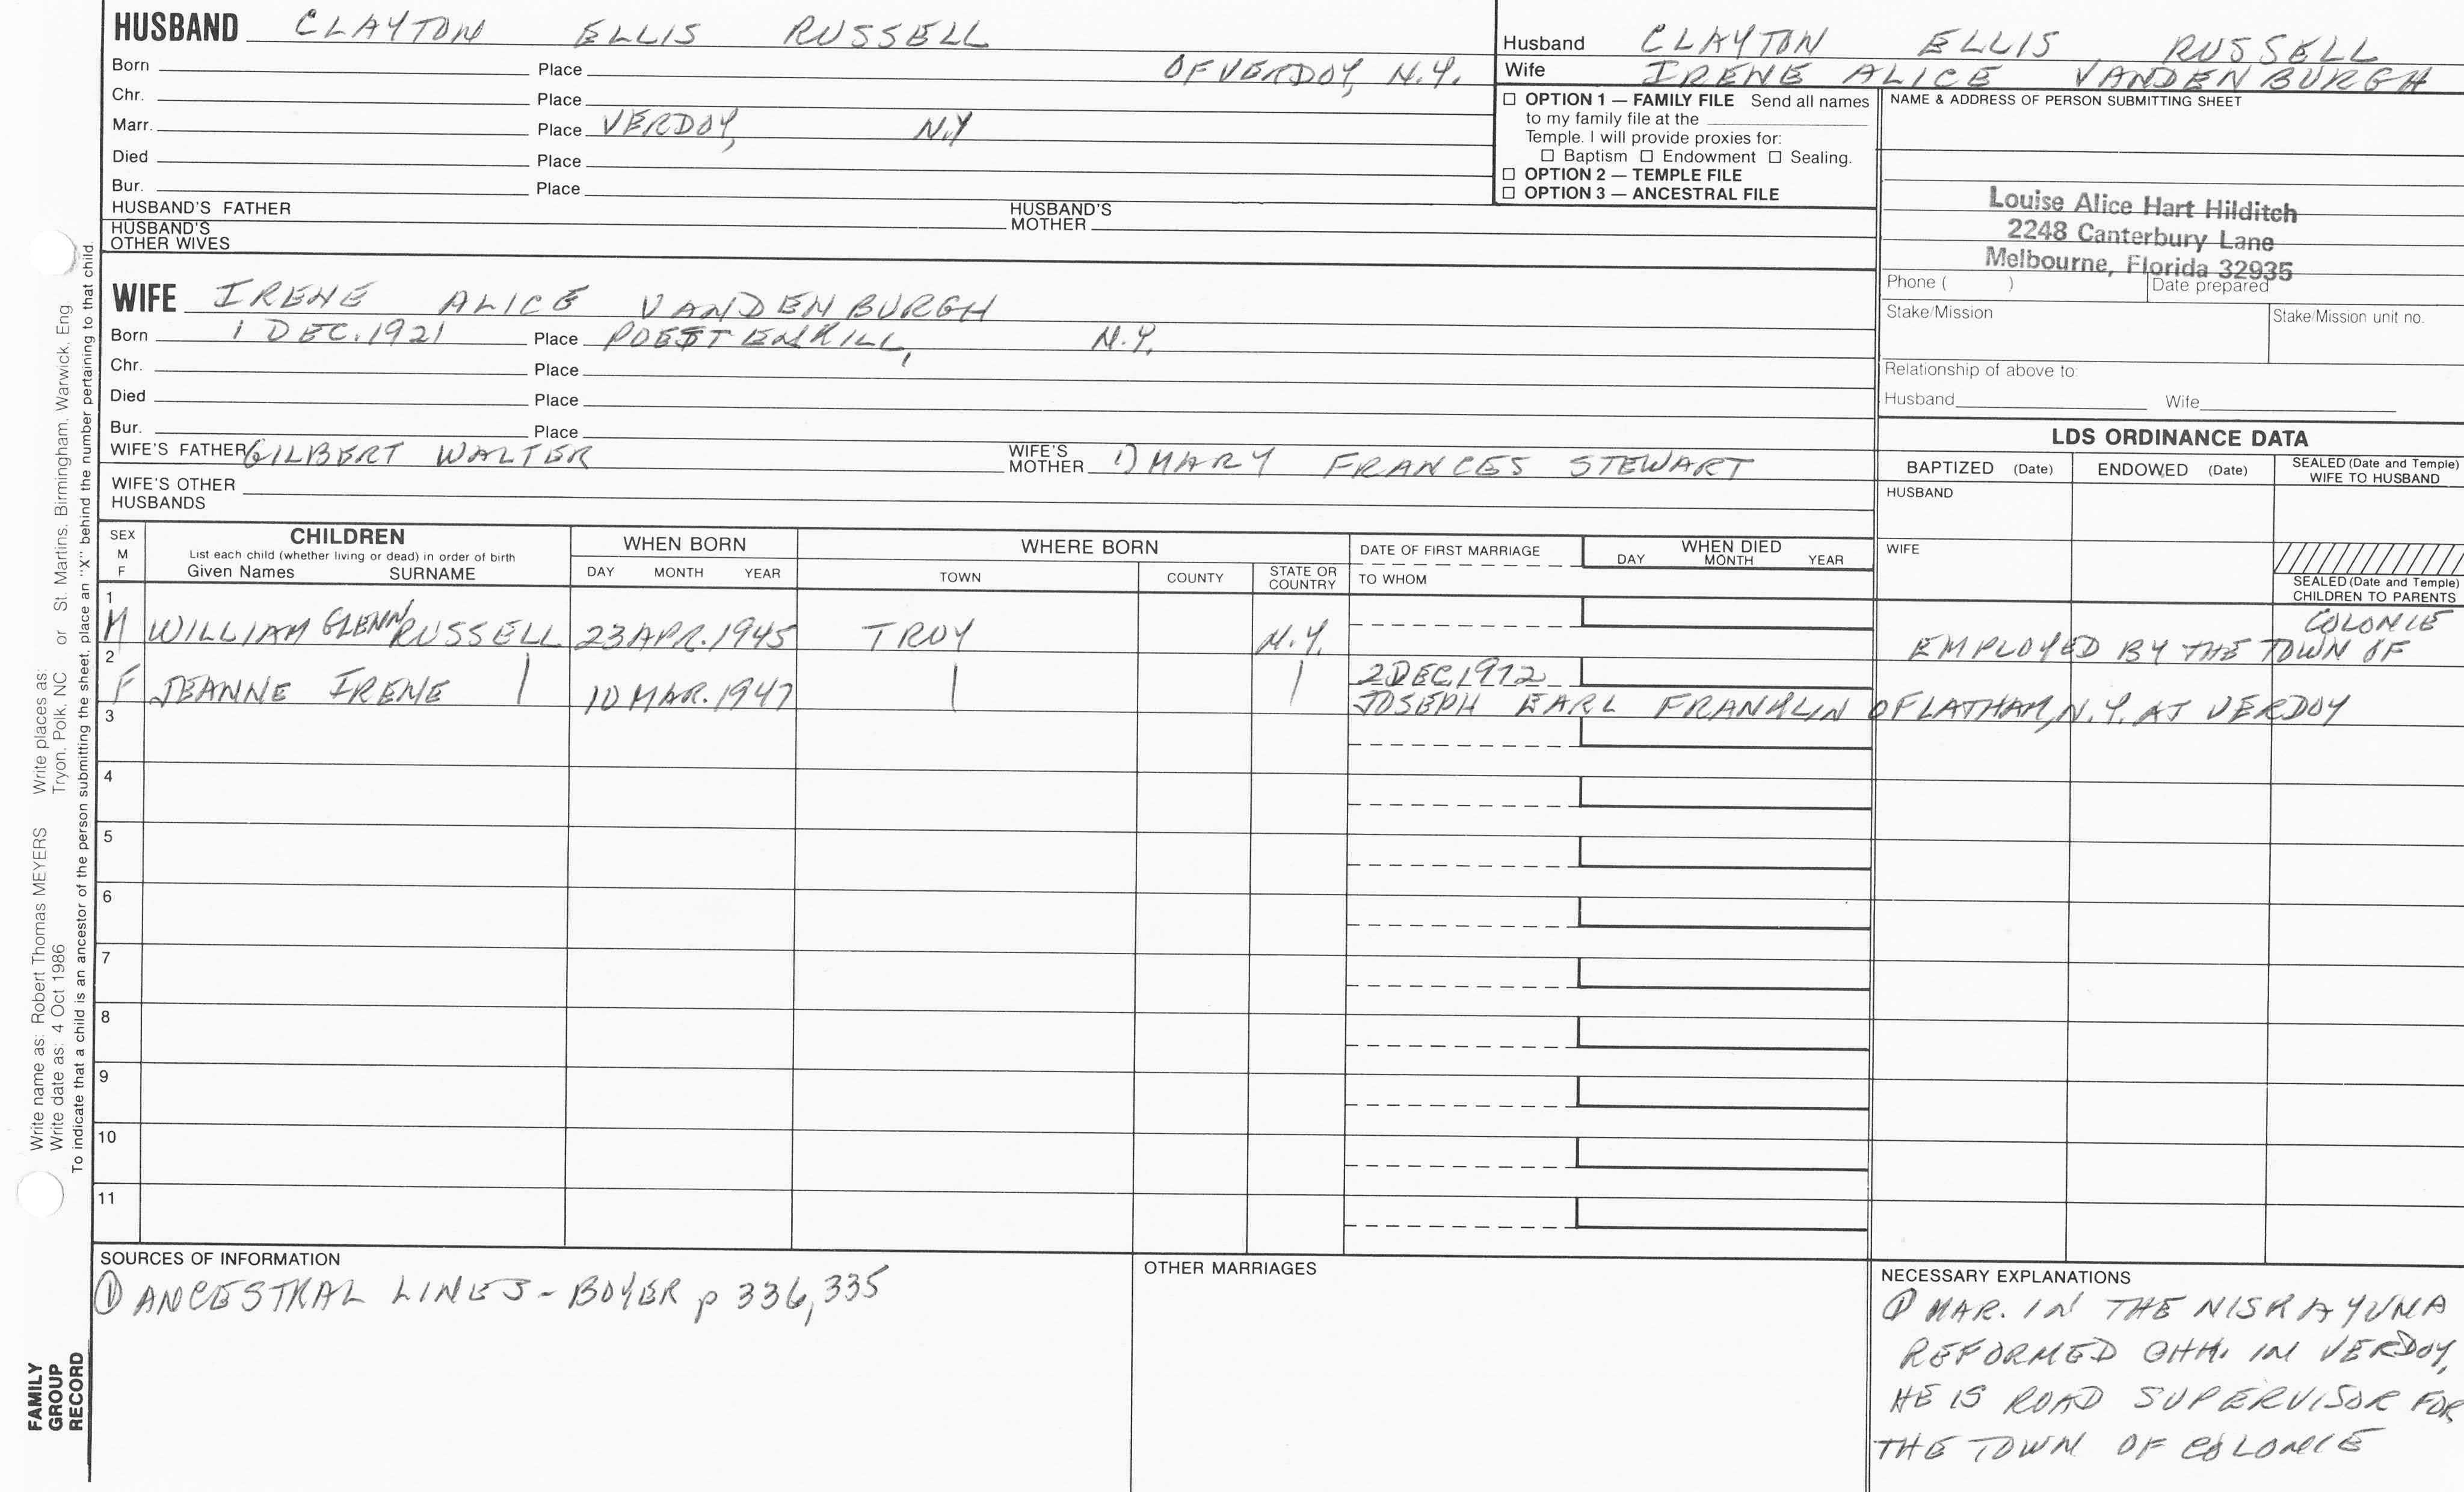 HUSBAND CLAYTON ELLIS RUSSELL
Born Place OF VERDOY, N.Y.
Chr. Place
Marr. Place VERDOY, N.Y
Died Place
Bur. Place
HUSBAND'S FATHER HUSBAND'S MOTHER
HUSBAND'S OTHER WIVES
Husband CLAYTON ELLIS RUSSELL
Wife IRENE ALICE VANDENBURGH
☐ OPTION 1 — FAMILY FILE Send all names
to my family file at the
Temple. I will provide proxies for:
☐ Baptism ☐ Endowment ☐ Sealing.
☐ OPTION 2 — TEMPLE FILE
☐ OPTION 3 — ANCESTRAL FILE
NAME & ADDRESS OF PERSON SUBMITTING SHEET
Louise Alice Hart Hilditch
2248 Canterbury Lane
Melbourne, Florida 32935
Phone ( ) Date prepared
Stake/Mission Stake/Mission unit no.
Relationship of above to:
Husband Wife
WIFE IRENE ALICE VANDENBURGH
Born 1 DEC. 1921 Place POESTENKILL, N.Y.
Chr. Place
Died Place
Bur. Place
WIFE'S FATHER GILBERT WALTER WIFE'S MOTHER 1) MARY FRANCES STEWART
WIFE'S OTHER HUSBANDS
LDS ORDINANCE DATA
BAPTIZED (Date) ENDOWED (Date) SEALED (Date and Temple) WIFE TO HUSBAND
HUSBAND
WIFE
SEALED (Date and Temple) CHILDREN TO PARENTS
SEX M F
CHILDREN
List each child (whether living or dead) in order of birth
Given Names SURNAME
WHEN BORN
DAY MONTH YEAR
WHERE BORN
TOWN COUNTY STATE OR COUNTRY
DATE OF FIRST MARRIAGE
TO WHOM
WHEN DIED
DAY MONTH YEAR
1 M WILLIAM GLENN RUSSELL 23 APR. 1945 TROY N.Y. EMPLOYED BY THE TOWN OF COLONIE
2 F JEANNE IRENE | 10 MAR. 1947 | | 2 DEC, 1972
JOSEPH EARL FRANKLIN OF LATHAM, N.Y. AT VERDOY
3
4
5
6
7
8
9
10
11
SOURCES OF INFORMATION
① ANCESTRAL LINES - BOYER p 336, 335
OTHER MARRIAGES
NECESSARY EXPLANATIONS
① MAR. IN THE NISKAYUNA
REFORMED CHH. IN VERDOY,
HE IS ROAD SUPERVISOR FOR
THE TOWN OF COLONIE
Write name as: Robert Thomas MEYERS Write places as:
Write date as: 4 Oct 1986 Tryon, Polk, NC or St. Martins, Birmingham, Warwick, Eng
To indicate that a child is an ancestor of the person submitting the sheet, place an "X" behind the number pertaining to that child.
FAMILY
GROUP
RECORD